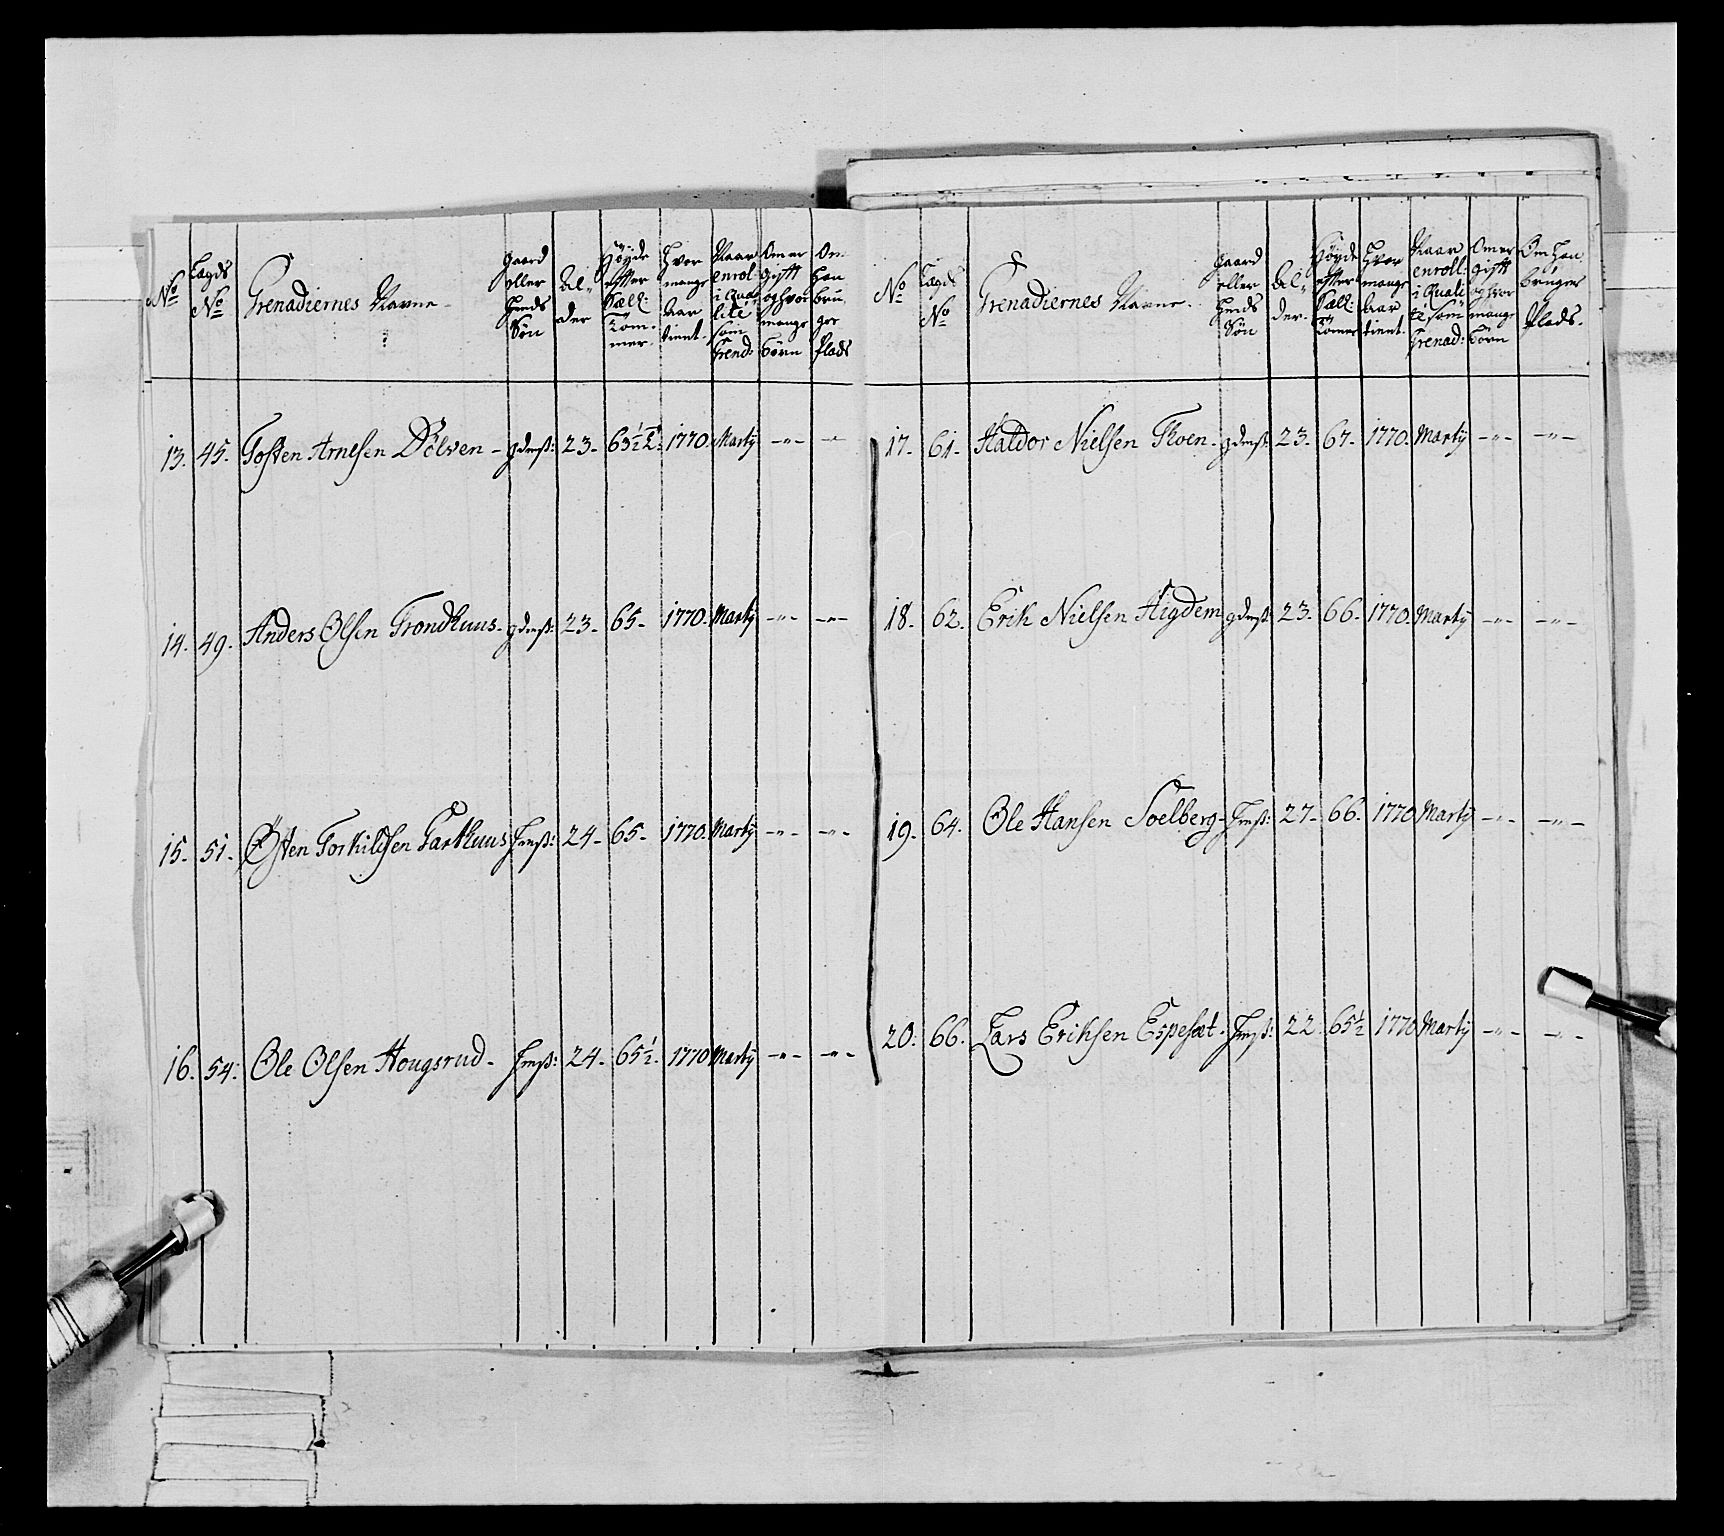 No
Lægds No
Grenadiernes Navne
gaard eller Huuds Søn
Al-der
Høyde efter Sæll: Tom-mer.
Hvor mange Aar tient.
Naar enrol: i Quali-tite som Grend:
Om er gift og hvor mange Børn
Om han bru-ger Plads
13. 45. Tosten Arnesen Dölven - gdmß: 23. 63½ 1770. Marty -"- -"-
14. 49. Anders Olsen Trondhuus. gdmß: 23. 65. 1770. Marty -"- -"-
15. 51. Østen Torkildsen Garthuus hmß: 24. 65. 1770. Marty -"- -"-
16. 54. Ole Olsen Hougsrud. hmß: 24. 65½. 1770 Marty -"- -"-
No
Lægds No
Grenadiernes Navne.
gaard eller Huuds Søn
Al-der.
Høyde efter Sæll: Tomer
Hvor mange Aar tient.
Naar enroll: i Quali-te som Grenad:
Om er gift og hvor mange Børn
Om han brüger Plads.
17. 61. Haldor Nielsen Floen. gdmß: 23. 67. 1770. Marty -"- -"-
18. 62. Erik Nielsen Aigdem gdmß: 23. 66. 1770. Marty -"- -"-
19. 64. Ole Hansen Soelberg. hmß: 27. 66. 1770 Marty -"- -"-
20. 66. Lars Eriksen Espesæt. hmß: 22. 65½ 1770 Marty -"- -"-